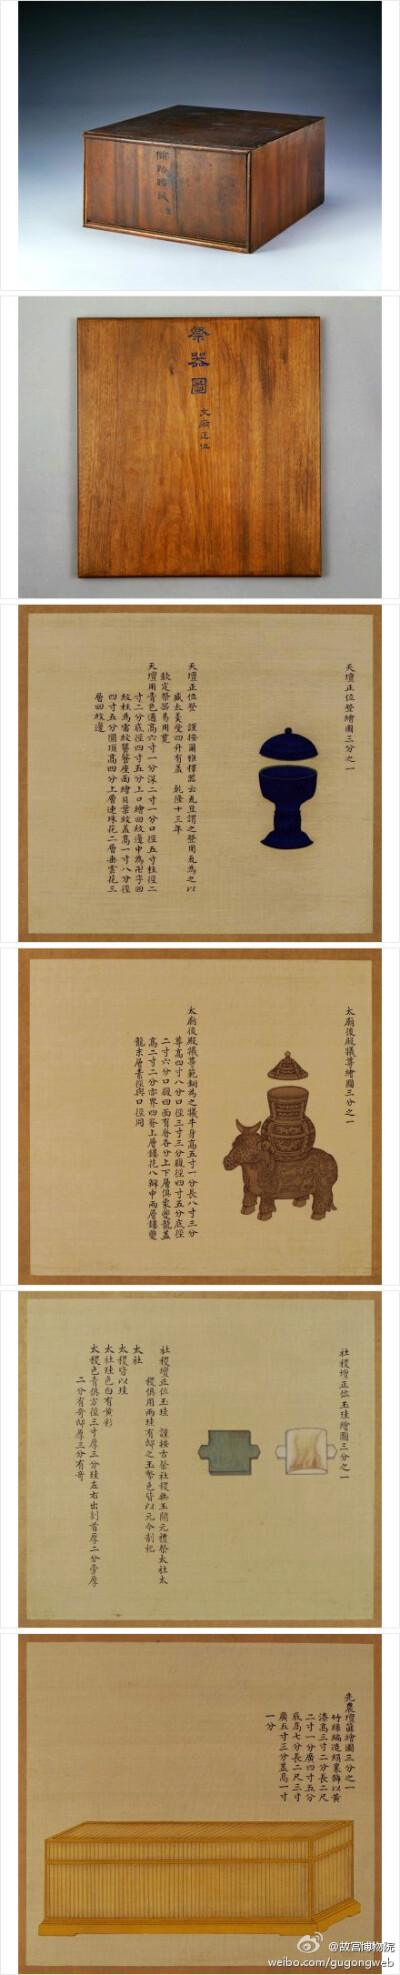 祭器圖
文廟正位
天壇正位登繪圖三分之一
天壇正位登 謹按爾雅釋器云瓦豆謂之登用瓦為之以
盛太羹受四升有蓋 乾隆十三年
欽定祭器易用瓷
天壇用青色通高六寸一分深二寸一分口徑五寸柱徑二
寸二分底徑四寸五分上口繪回紋邊中為卍字回
紋柱為雷紋饕餮座面繪貝葉紋蓋高一寸八分徑
四寸五分圓頂高四分上層連珠花二層垂雲花三
層回紋邊
太廟後殿犧尊繪圖三分之一
太廟後殿犧尊範銅為之犧牛身高五寸一分長八寸三分
尊高四寸八分口徑三寸三分腹徑四寸五分底徑
二寸六分口腹四面有脊各分上下層俱象夔龍蓋
高二寸二分亦界四脊上層鏤花八瓣中兩層鏤夔
龍末層素徑與口徑同
社稷壇正位玉珪繪圖三分之一
社稷壇正位玉珪 謹按古祭社稷無玉開元禮祭太社太
稷俱用兩珪有邸之玉幣色皆以元今制祀
太社
太稷皆以珪
太社珪色白有黃彩
太稷色青俱方徑三寸厚三分珪左右出剡首厚二分旁厚
二分有奇邸厚三分有奇
先農壇篚繪圖三分之一
竹絲編造絹裏飾以黃
漆高三寸二分長二尺
二寸一分廣四寸五分
底高七分長二尺三寸
廣五寸三分蓋高一寸
一分
@故宫博物院
weibo.com/gugongweb